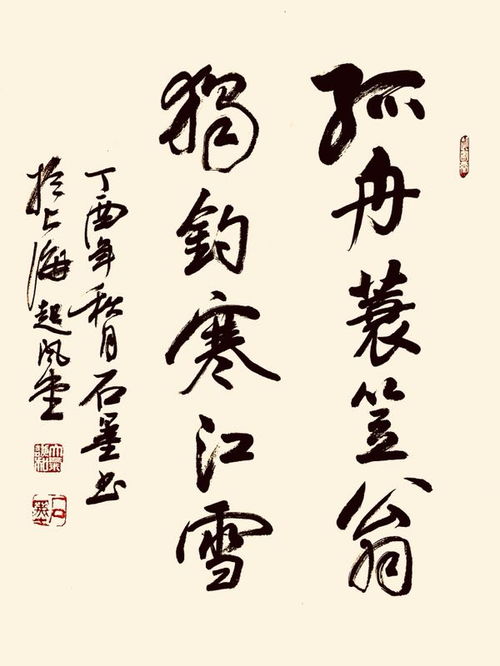 孤舟蓑笠翁
獨釣寒江雪
丁酉年秋月石墨书
於上海起风堂